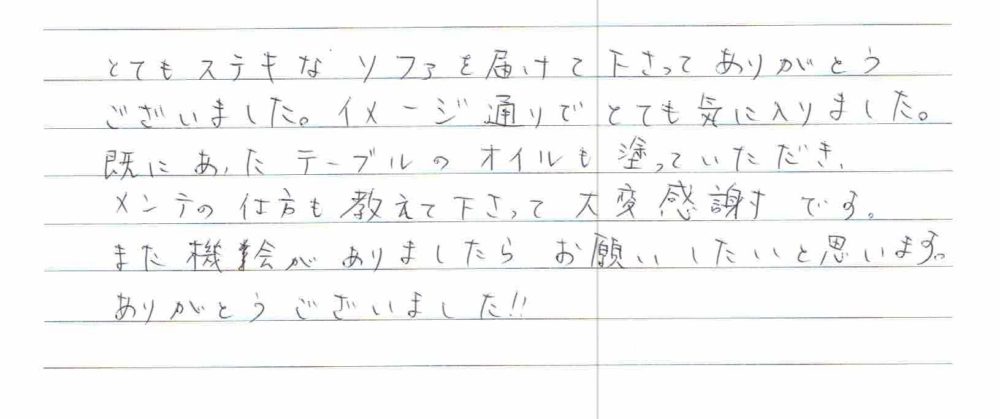 とてもステキな ソファを届けて下さってありがとう
ございました。イメージ通りでとても気に入りました。
既にあったテーブルのオイルも塗っていただき、
メンテの仕方も教えて下さって大変感謝す です。
また機絵がありましたらお願いしたいと思います。
ありがとうございました!!